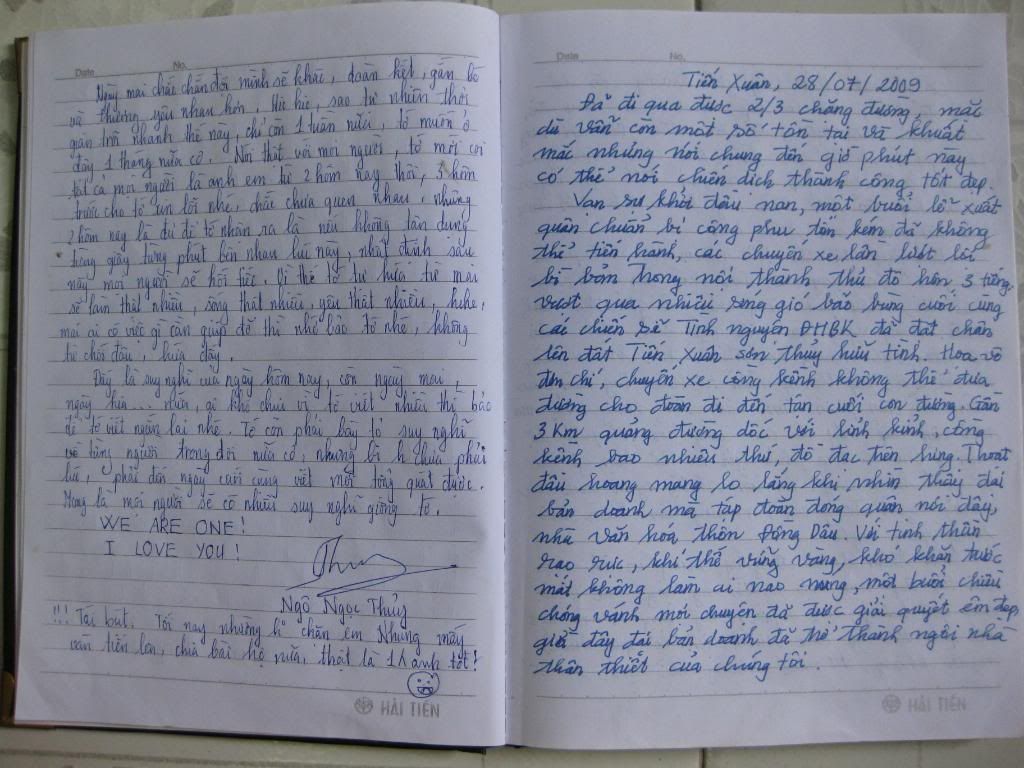 Date No.
Ngày mai chắc chắn đội mình sẽ khác, đoàn kết, gắn bó
và thương yêu nhau hơn. Hic hic, sao tự nhiên thời
gian trôi nhanh thế này, chỉ còn 1 tuần nữa, tớ muốn ở
đây 1 tháng nữa cơ. Nói thật với mọi người, tớ mới coi
tất cả mọi người là anh em từ 2 hôm nay thôi, 3 hôm
trước cho tớ xin lỗi nhé, chắc chưa quen nhau, nhưng
2 hôm nay là đủ để tớ nhận ra là nếu không tận dụng
từng giây từng phút bên nhau lúc này, nhất định sau
này mọi người sẽ hối tiếc. Vì thế tớ tự hứa từ mai
sẽ làm thật nhiều, sống thật nhiều, yêu thật nhiều, hehe,
mai ai có việc gì cần giúp đỡ thì nhớ bảo tớ nhé, không
từ chối đâu, hứa đấy.
Đây là suy nghĩ của ngày hôm nay, còn ngày mai,
ngày kia... nữa, gì khó chịu vì tớ viết nhiều thì bảo
để tớ viết ngắn lại nhé. Tớ còn phải bày tỏ suy nghĩ
về từng người trong đội nữa cơ, nhưng bi h chưa phải
lúc, phải đến ngày cuối cùng viết mới tổng quát được.
Mong là mọi người sẽ có nhiều suy nghĩ giống tớ.
WE ARE ONE!
I LOVE YOU!
Ngô Ngọc Thủy
!!! Tái bút. Tối nay nhường hi chăn em Nhung mấy
ván tiến lên, chia bài hộ nữa, thật là 1 anh tốt!
HẢI TIẾN
Date No.
Tiến Xuân, 28/07/2009
Đã đi qua được 2/3 chặng đường, mặc
dù vẫn còn một số tồn tại và khuất
mắc nhưng nói chung đến giờ phút này
có thể nói chiến dịch thành công tốt đẹp.
Vạn sự khởi đầu nan, một buổi lễ xuất
quân chuẩn bị công phu tốn kém đã không
thể tiến hành, các chuyến xe lần lượt lội
bì bõm trong nội thành thủ đô hơn 3 tiếng,
vượt qua nhiều song gió bão bùng cuối cùng
các chiến sĩ Tình nguyện ĐHBK đã đặt chân
lên đất Tiến Xuân sơn thủy hữu tình. Họa vô
đơn chí, chuyến xe cồng kềnh không thể đưa
đường cho đoàn đi đến tận cuối con đường. Gần
3 Km quãng đường dốc với linh kinh, cồng
kềnh bao nhiêu thứ, đồ đạc trên lưng. Thoạt
đầu hoang mang lo lắng khi nhìn thấy đại
bản doanh mà tập đoàn đóng quân nơi đây,
nhà văn hoá thôn Đồng Dâu. Với tinh thần
rạo rực, khí thế vững vàng, khó khăn trước
mắt không làm ai nao núng, một buổi chiều
chóng vánh mọi chuyện đã được giải quyết êm đẹp,
giờ đây đại bản doanh đã trở thành ngôi nhà
thân thiết của chúng tôi.
HẢI TIẾN